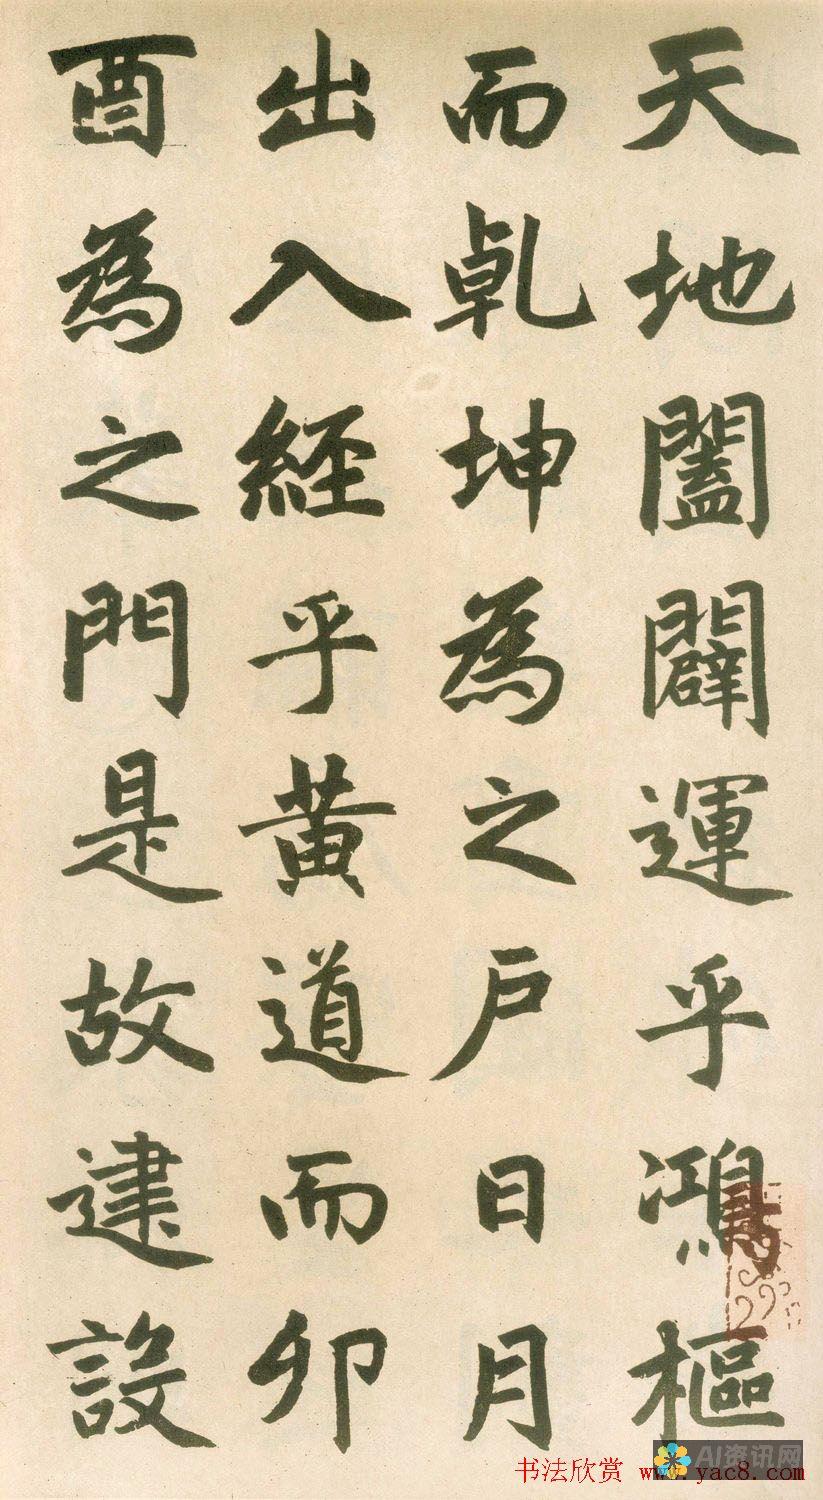 天地闔闢運乎鴻樞
而乹坤為之戶日月
出入經乎黃道而卯
酉為之門是故建設
AI资讯网
书法欣赏 www.yac8.com